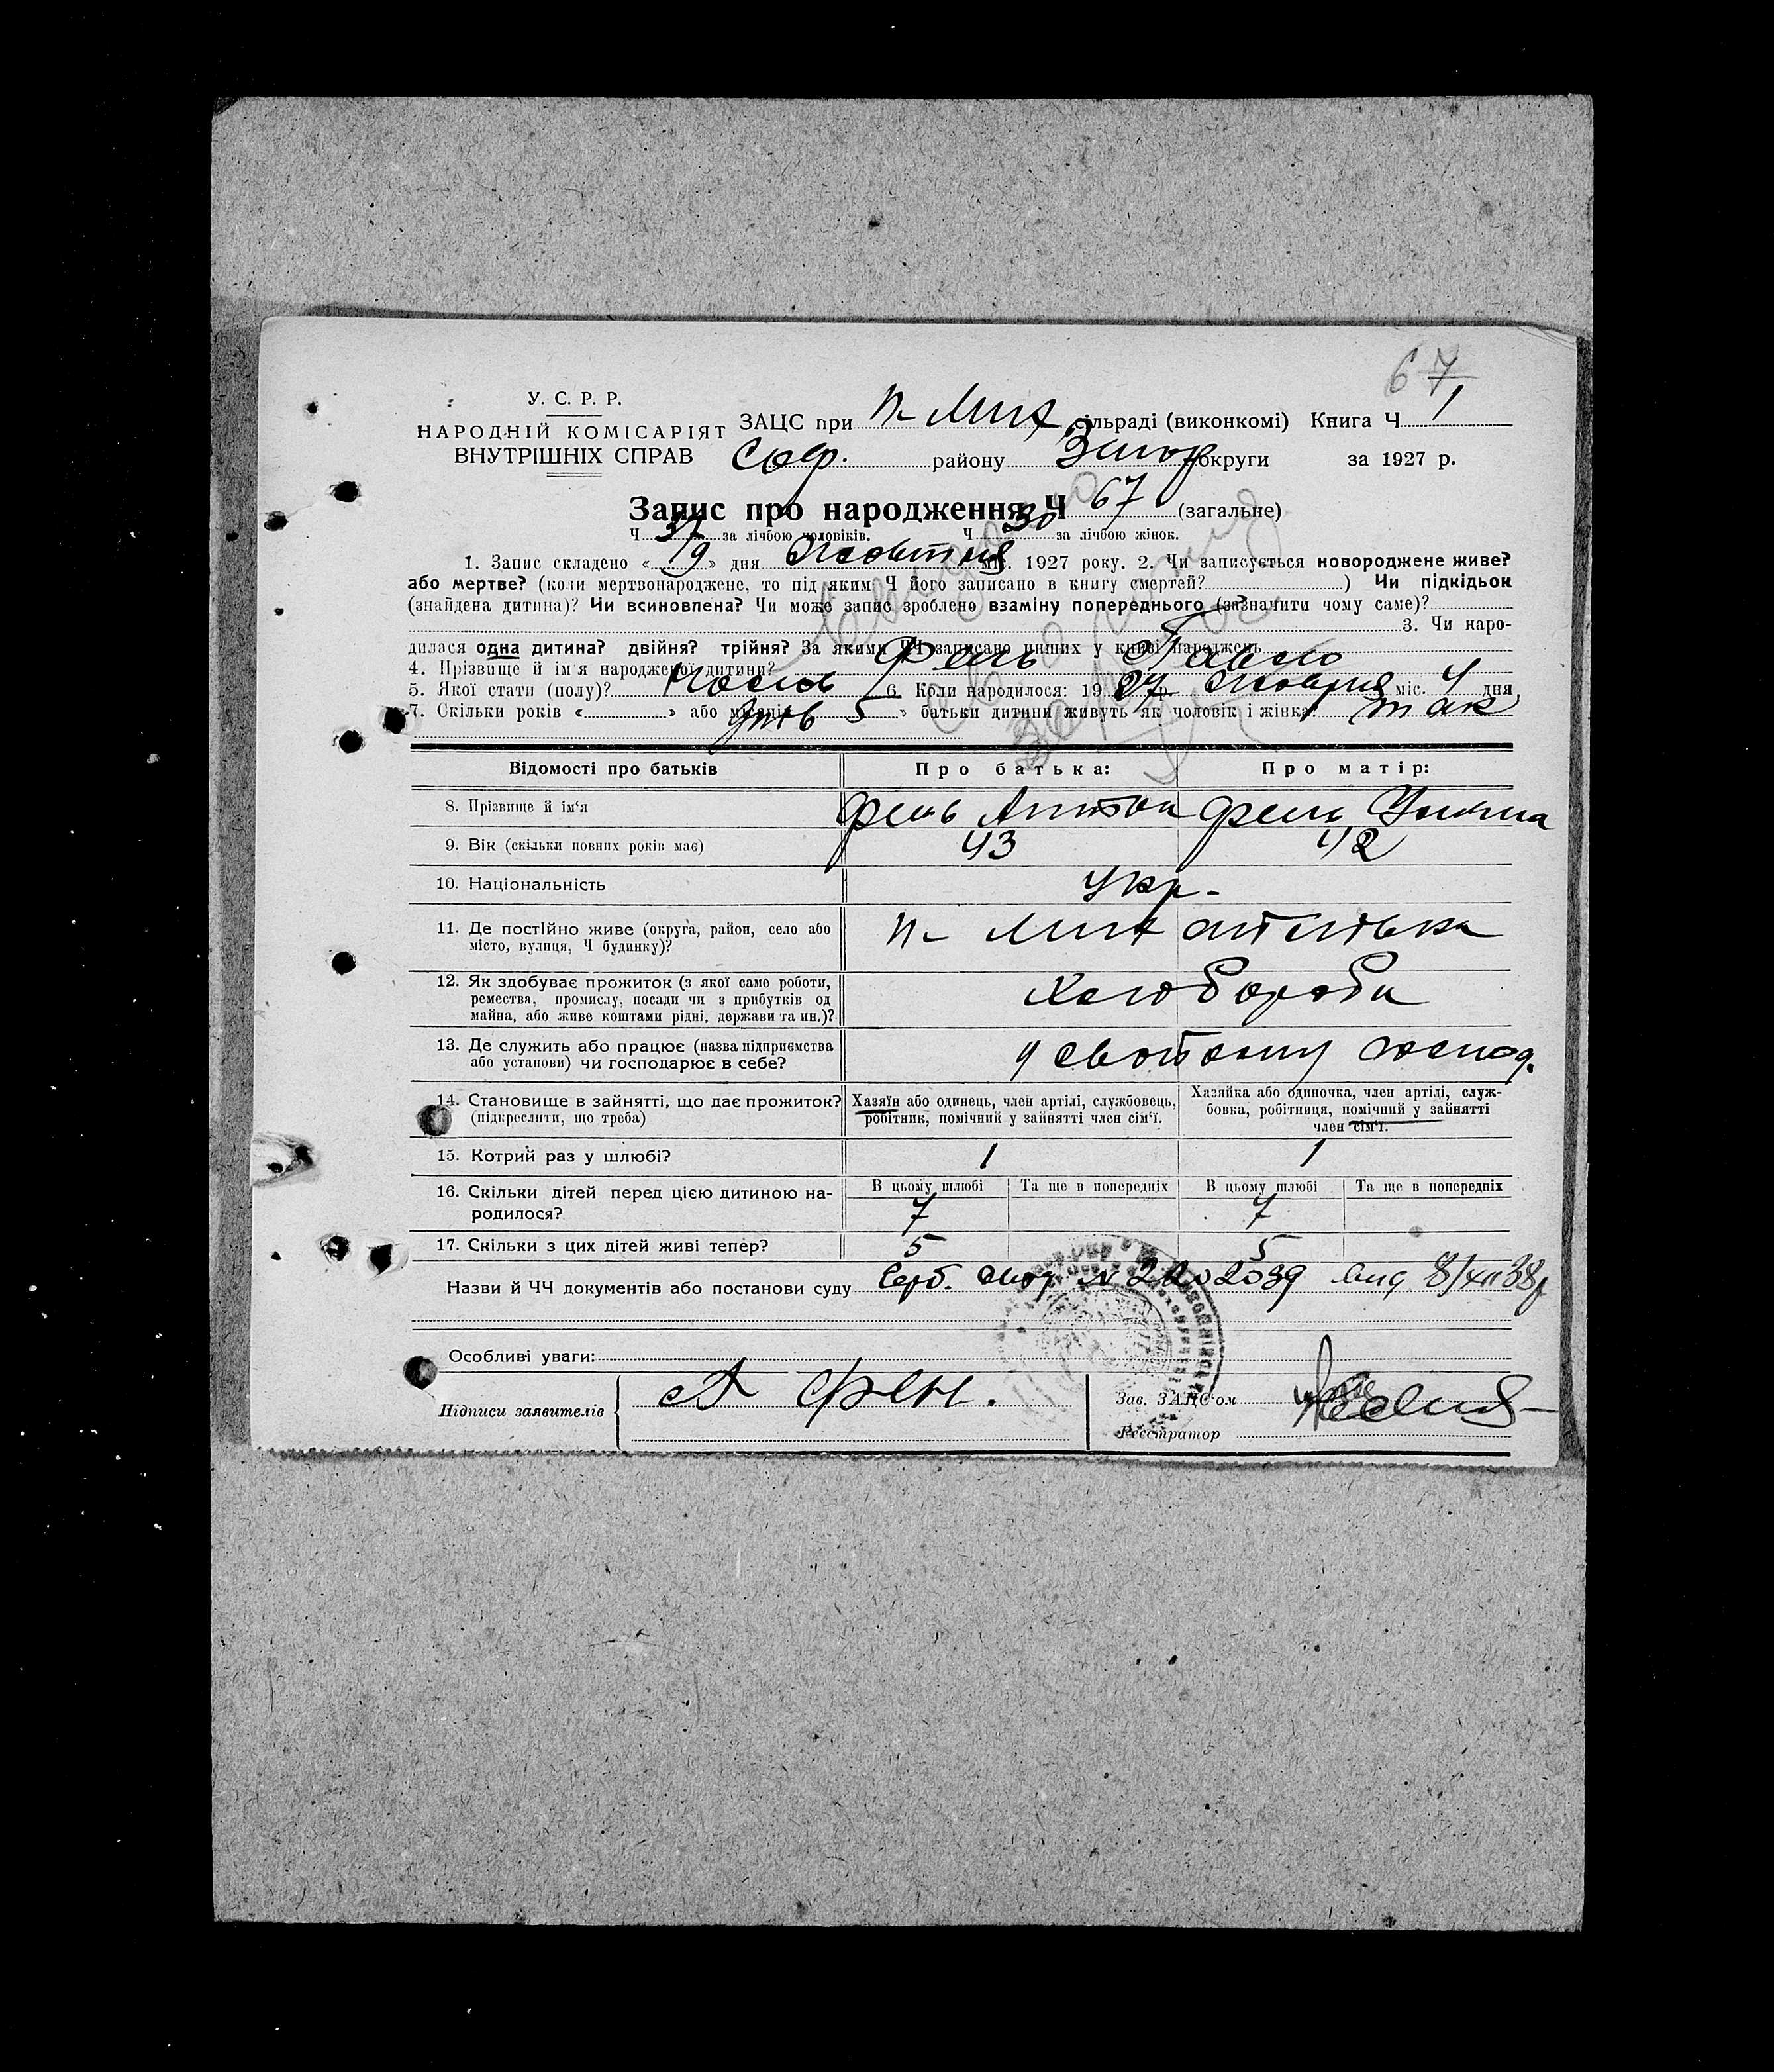 67
У. С. Р. Р.
НАРОДНІЙ КОМІСАРІЯТ
ВНУТРІШНІХ СПРАВ
ЗАЦС при Н- Мих сільраді (виконкомі) Книга Ч 1
Соф. району Зінов округи за 1927 р.
Запис про народження Ч 67 (загальне)
Ч 37 за лічбою чоловіків. Ч 30 за лічбою жінок.
1. Запис складено « 9 » дня Жовтня міс. 1927 року. 2. Чи записується новороджене живе?
або мертве? (коли мертвонароджене, то під яким Ч його записано в книгу смертей? ) Чи підкідьок
(знайдена дитина)? Чи всиновлена? Чи може запис зроблено взаміну попереднього (зазначити чому саме)?
3. Чи наро-
дилася одна дитина? двійня? трійня? За якими ЧЧ записано инших у книзі народжень
4. Прізвище й ім'я народженої дитини? Фень Павло
5. Якої стати (полу)? 6. Коли народилося: 19 27 р. Жовтня міс. 4 дня
7. Скільки років « » або місяців « 5 » батьки дитини живуть як чоловік і жінка? так
Відомості про батьків
Про батька:
Про матір:
8. Прізвище й ім'я Фень Антон Фень
9. Вік (скільки повних років має) 43 42
10. Національність Укр-
11. Де постійно живе (округа, район, село або
місто, вулиця, Ч будинку)?
Н- Михайлівка
12. Як здобуває прожиток (з якої саме роботи,
ремества, промислу, посади чи з прибутків од
майна, або живе коштами рідні, держави та ин.)?
Хлібороби
13. Де служить або працює (назва підприємства
або установи) чи господарює в себе?
у свойому господ.
14. Становище в зайнятті, що дає прожиток?
(підкреслити, що треба)
Хазяїн або одинець, член артілі, службовець,
робітник, помічний у зайнятті член сім'ї.
Хазяйка або одиночка, член артілі, служ-
бовка, робітниця, помічний у зайнятті
член сім'ї.
15. Котрий раз у шлюбі? 1 1
16. Скільки дітей перед цією дитиною на-
родилося?
В цьому шлюбі Та ще в попередніх В цьому шлюбі Та ще в попередніх
7 7
17. Скільки з цих дітей живі тепер? 5 5
Назви й ЧЧ документів або постанови суду 8/XII 38р
Особливі уваги:
Підписи заявителів А Фен.
Зав. ЗАЦС'ом
Реєстратор